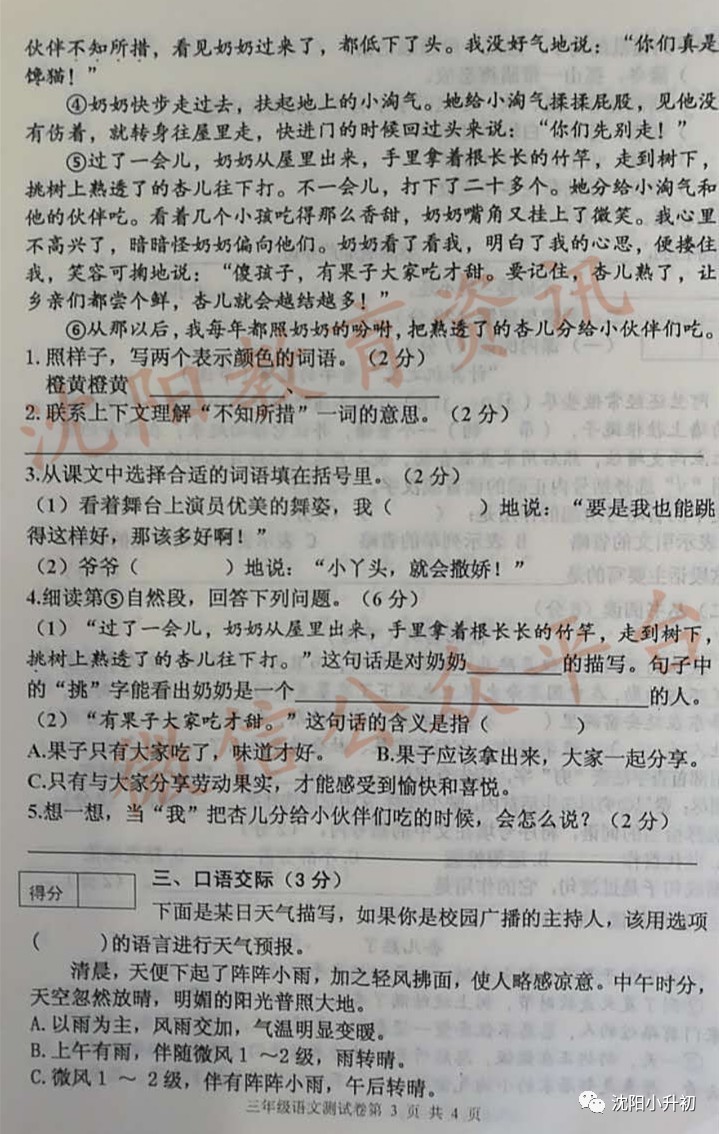 伙伴不知所措，看见奶奶过来了，都低下了头。我没好气地说：“你们真是
馋猫！”
④奶奶快步走过去，扶起地上的小淘气。她给小淘气揉揉屁股，见他没
有伤着，就转身往屋里走，快进门的时候回过头来说：“你们先别走！”
⑤过了一会儿，奶奶从屋里出来，手里拿着根长长的竹竿，走到树下，
挑树上熟透了的杏儿往下打。不一会儿，打下了二十多个。她分给小淘气和
他的伙伴吃。看着几个小孩吃得那么香甜，奶奶嘴角又挂上了微笑。我心里
不高兴了，暗暗怪奶奶偏向他们。奶奶看了看我，明白了我的心思，便搂住
我，笑容可掬地说：“傻孩子，有果子大家吃才甜。要记住，杏儿熟了，让
乡亲们都尝个鲜，杏儿就会越结越多！”
⑥从那以后，我每年都照奶奶的吩咐，把熟透了的杏儿分给小伙伴们吃。
1.照样子，写两个表示颜色的词语。（2 分）
橙黄橙黄 ________、________
2.联系上下文理解“不知所措”一词的意思。（2 分）
3.从课文中选择合适的词语填在括号里。（2 分）
（1）看着舞台上演员优美的舞姿，我（ ）地说：“要是我也能跳
得这样好，那该多好啊！”
（2）爷爷（ ）地说：“小丫头，就会撒娇！”
4.细读第⑤自然段，回答下列问题。（6 分）
（1）“过了一会儿，奶奶从屋里出来，手里拿着根长长的竹竿，走到树下，
挑树上熟透了的杏儿往下打。”这句话是对奶奶________的描写。句子中
的“挑”字能看出奶奶是一个________________的人。
（2）“有果子大家吃才甜。”这句话的含义是指（ ）
A.果子只有大家吃了，味道才好。 B.果子应该拿出来，大家一起分享。
C.只有与大家分享劳动果实，才能感受到愉快和喜悦。
5.想一想，当“我”把杏儿分给小伙伴们吃的时候，会怎么说？（2 分）
得分
三、口语交际（3 分）
下面是某日天气描写，如果你是校园广播的主持人，该用选项
（ ）的语言进行天气预报。
清晨，天便下起了阵阵小雨，加之轻风拂面，使人略感凉意。中午时分，
天空忽然放晴，明媚的阳光普照大地。
A. 以雨为主，风雨交加，气温明显变暖。
B. 上午有雨，伴随微风 1 ～2 级，雨转晴。
C. 微风 1 ～ 2 级，伴有阵阵小雨，午后转晴。
三年级语文测试卷第 3 页 共 4 页
沈阳教育资讯
微信公众平台
沈阳小升初